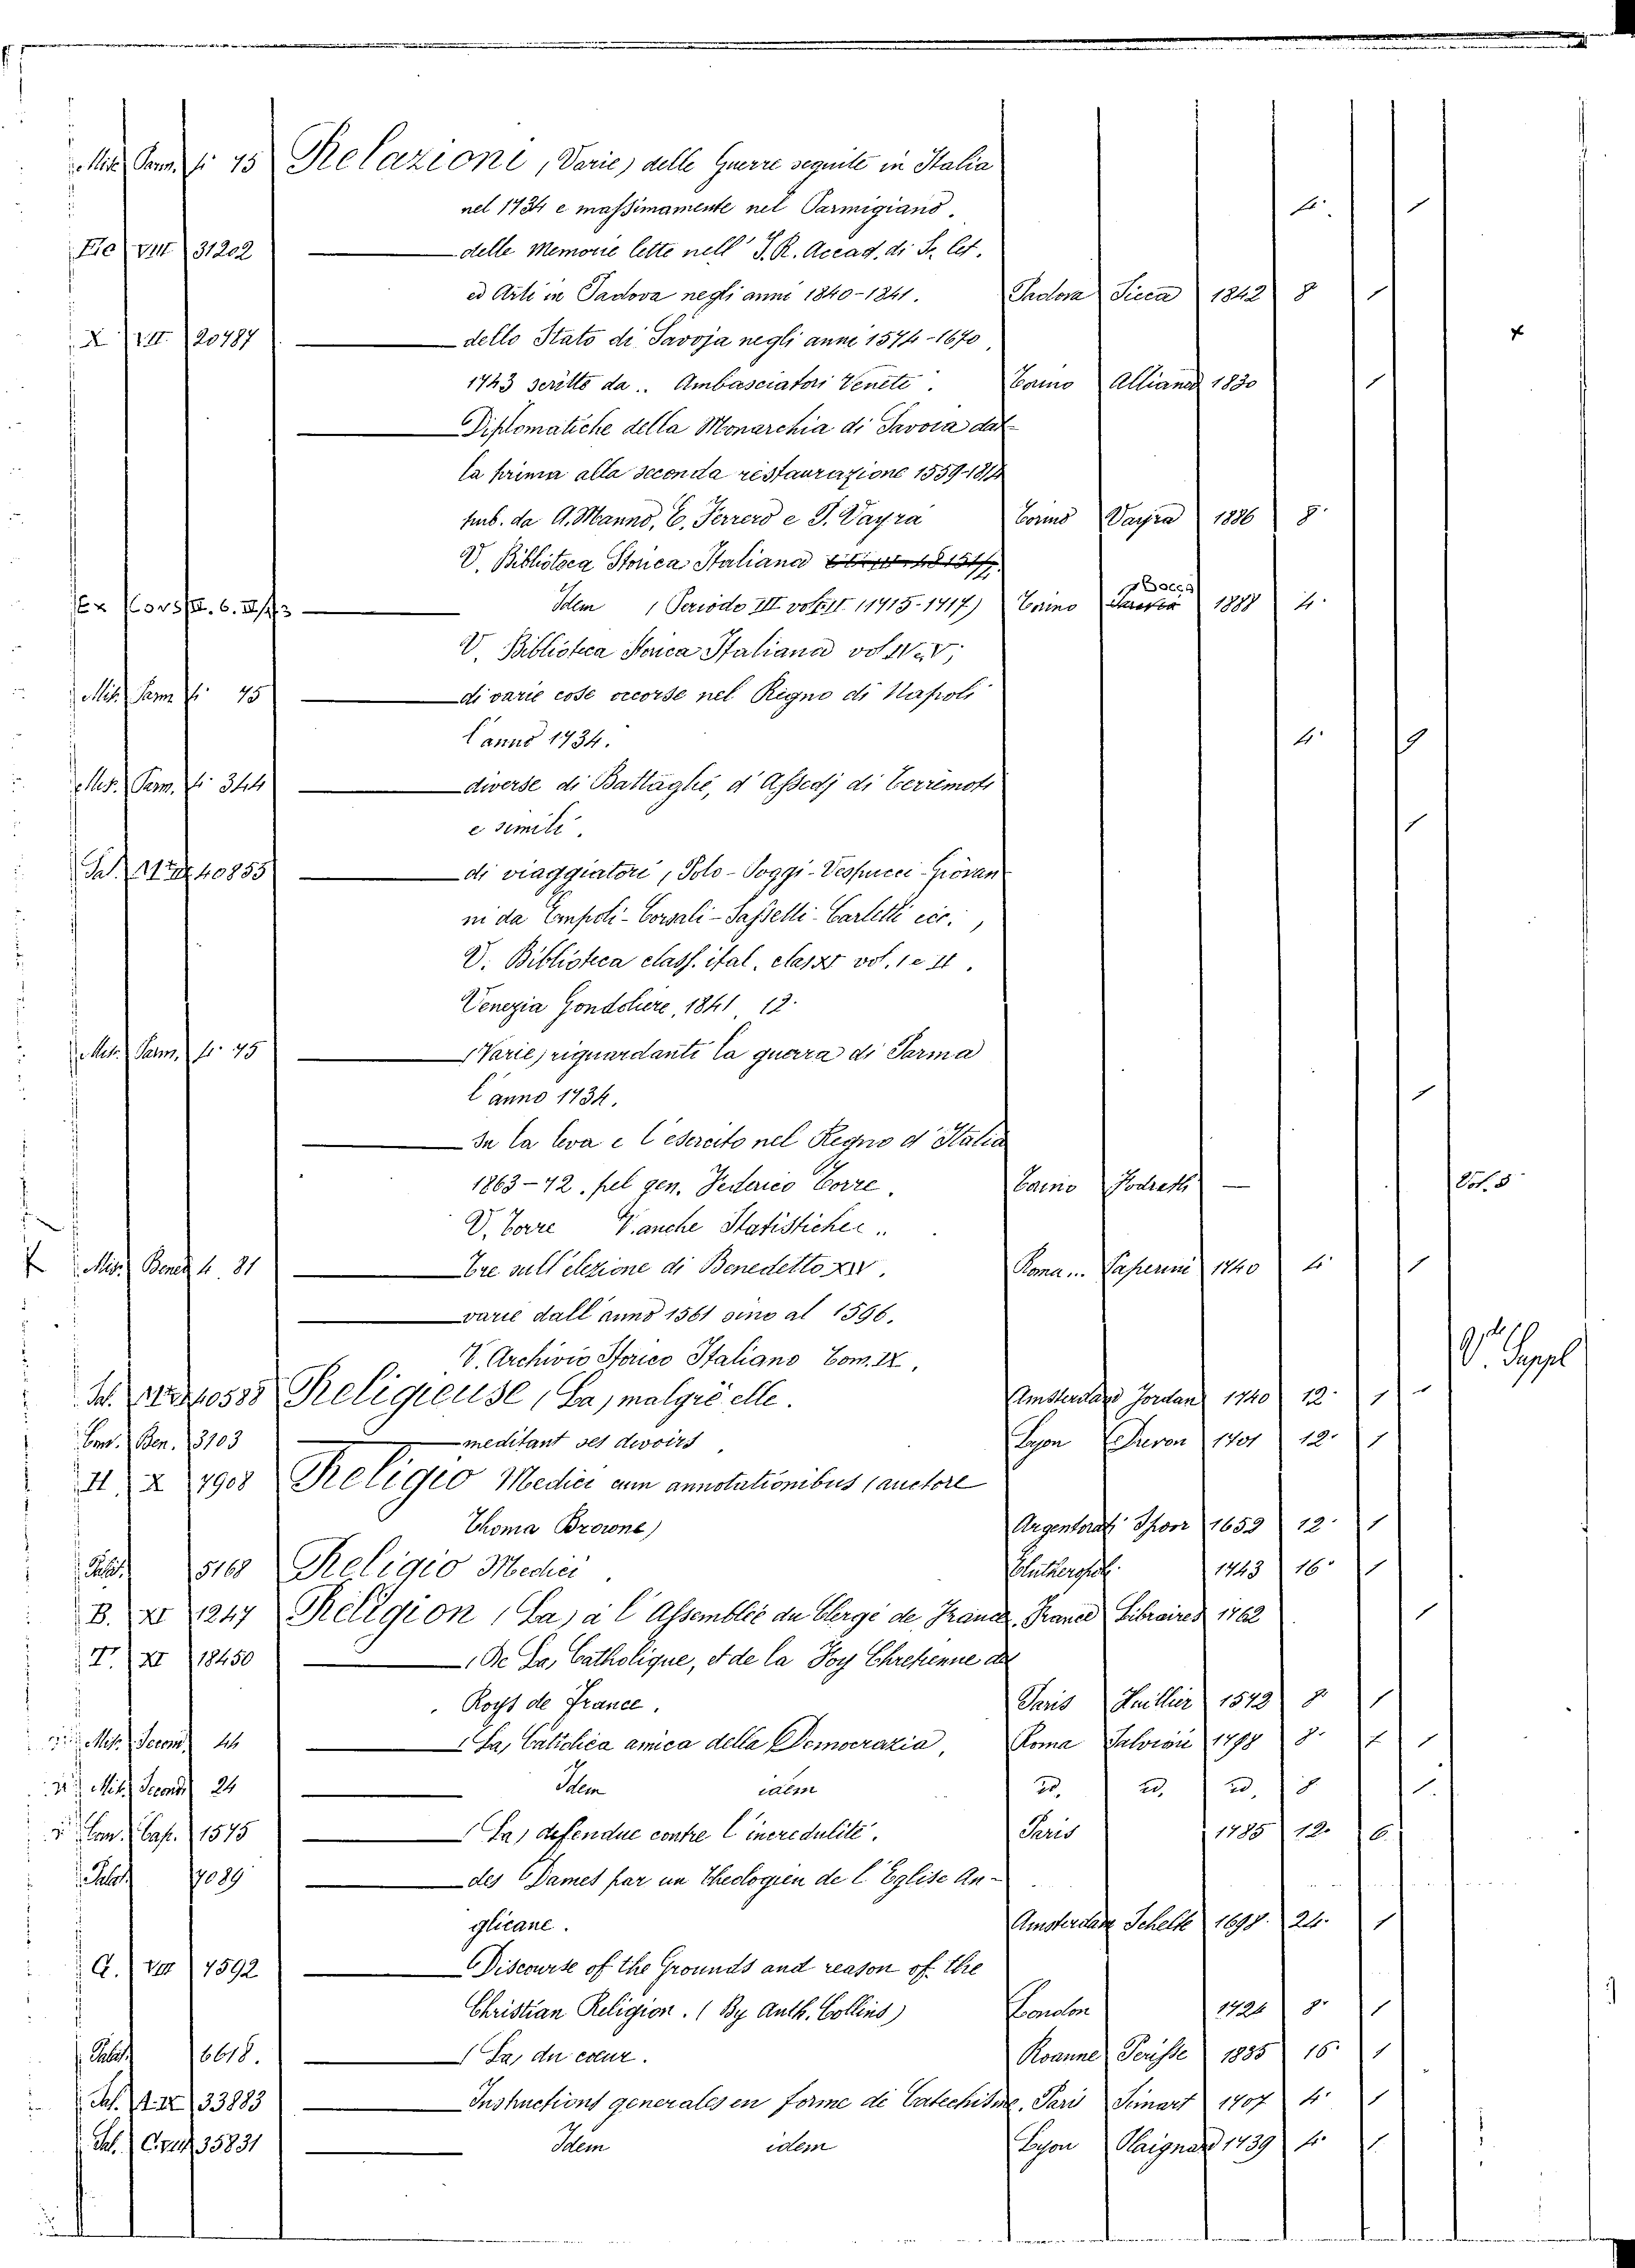 Mis. Parm. fo 75 Relazioni (Varie) delle Guerre seguite in Italia
nel 1734 e massimamente nel Parmigiano. 4. 1
Fie VIII 31202 — delle Memorie lette nell' I. R. Accad. di Sc. let.
ed Arti in Padova negli anni 1840-1841. Padova Sicca 1842 8 1
X VII 20787 — dello Stato di Savoja negli anni 1574-1670
1743 scritte da .. Ambasciatori Veneti. Torino Alliana 1830 1
— Diplomatiche della Monarchia di Savoia dal-
la prima alla seconda restaurazione 1559-1814
pub. da A. Manno, E. Ferrero e P. Vayra Torino Vayra 1886 8.
V. Biblioteca Storica Italiana
Ex Cors — Idem (Periodo III vol. II (1715-1717) Torino Bocca 1888 4.
V. Biblioteca Storica Italiana vol. IV e V,
Mis. Parm fo 75 — di varie cose occorse nel Regno di Napoli
l'anno 1734. 4. 9
Mis. Parm. fo 344 — diverse di Battaglie, d'Assedj di Terremoti
e simili. 1
Sal. 40855 — di viaggiatori (Polo-Poggi-Vespucci-Giovan
ni da Empoli-Corsali-Sassetti-Carletti ecc.,
V. Biblioteca class. ital. classe vol. 1 e II.
Venezia Gondoliere, 1841, 12.
Mis. Parm. fo 75 — (Varie) riguardanti la guerra di Parma
l'anno 1734. 1
— Su la leva e l'esercito nel Regno d'Italia
1863-72. pel gen. Federico Torre. Torino — Vol. 5
V. Torre V. anche Statistiche ..
Mis. Bened 4. 81 — Tre sull'elezione di Benedetto XIV. Roma... 1740 4. 1
— varie dall'anno 1561 sino al 1596.
V. Archivio Storico Italiano Tom. IX. V. Suppl
Sal. 40585 Religieuse (La) malgré elle. Amsterdam Jordan 1740 12. 1
Com. Ben. 3103 — meditant ses devoirs Lyon 1701 12. 1
H X 7908 Religio Medici cum annotationibus (auctore
Thoma Browne) Argentorati Spoor 1652 12. 1
Palat. 5168 Religio Medici. Elutheropoli. 1743 16. 1
B. XI 1247 Religion (La) à l'Assemblée du Clergé de France. France Libraires 1762 1
T. XI 18450 — (De La) Catholique, et de la Foy Chretienne des
Roys de France. Paris Huillier 1572 8. 1
Mis. Second 44 — (La) Catolica amica della Democrazia, Roma Salvioni 1798 8. 1
Mis. Second 24 — Idem idem id. id. id. 8 1.
Com. Cap. 1575 — (La) defendue contre l'incredulité. Paris 1785 12. 6.
Palat 7089 — des Dames par un Theologien de l'Eglise An-
glicane. Amsterdam Schelte 1698. 24. 1
G. VIII 7592 — Discourse of the Grounds and reason of the
Christian Religion. (By Anth. Collins) London 1724 8. 1
Palat. 6618. — (La) du cœur. Roanne Perisse 1835 16. 1
Sal. 33883 — Instructions generales en forme de Catechisme. Paris Simart 1707 4. 1
Sal. 35831 — Idem idem Lyon Plaignard 1739 4. 1.